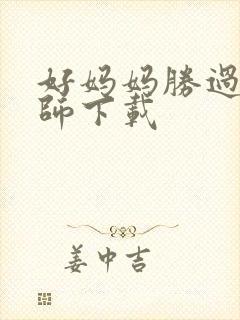 好妈妈勝過
師下載
姜中吉